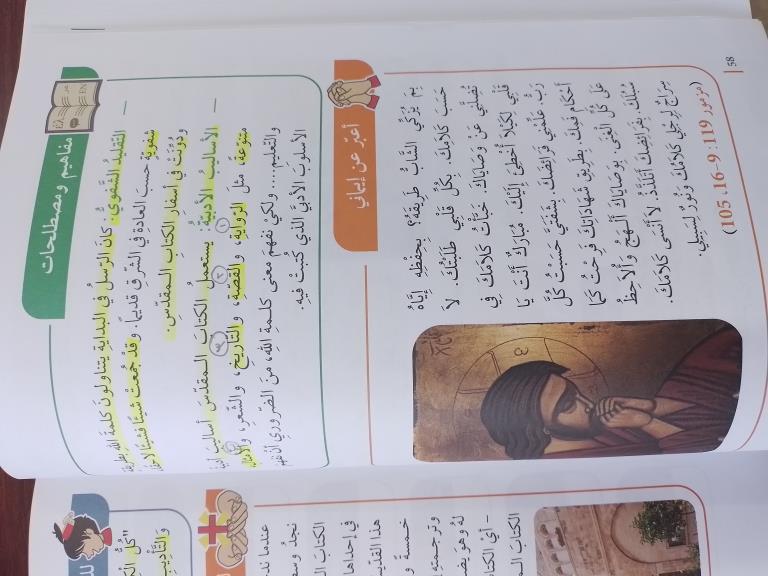 مفاهيم ومصطلحات
التقليدُ الشّفويّ: كانَ الرّسلُ في البدايةِ يتناولونَ كلمةَ اللهِ بطريقةٍ
شفويّةٍ حسبَ العادةِ في الشّرقِ قديماً. وقدْ جُمعتْ شيئاً فشيئاً
ودُوّنَتْ في أسفارِ الكتابِ المقدّسِ.
الأساليبُ الأدبيّةُ: يستعملُ الكتابُ المقدّسُ أساليبَ
متنوّعةً، مثلَ الرّوايةِ، والقصّةِ، والتاريخِ، والشّعرِ، والأمثالِ
والتعليمِ..... ولكيْ نفهمَ معنى كلمةِ اللهِ، منَ الضّروريِّ أنْ نفهمَ
الأسلوبَ الأدبيَّ الذي كُتبتْ فيهِ.
أعبّر عن إيماني
بِمَ يُزكّي الشّابُّ طريقَهُ؟ بِحِفظِهِ إيّاهُ
حَسَبَ كلامِكَ. بِكُلِّ قلبي طَلَبتُكَ. لا
تُضِلَّني عَنْ وَصاياكَ. خَبَأْتُ كلامَكَ في
قلبي لِكَيْلا أُخطِئَ إليكَ. مُبارَكٌ أنتَ يا
رَبُّ. عَلِّمْني فَرائِضَكَ. بِشَفَتَيَّ حَسَبْتُ كُلَّ
أحكامِ فيكَ. بِطَريقِ شَهاداتِكَ فَرِحْتُ كما
عَلى كُلِّ الغِنى. بِوَصاياكَ أَلْهَجُ وأُلاحِظُ
سُبُلَكَ. بِفَرائِضِكَ أَتَلَذَّذُ. لا أَنْسى كلامَكَ.
سِراجٌ لِرِجْلي كلامُكَ ونورٌ لِسَبيلي.
(مزمور 119: 9-16، 105)
58
"كُلُّ
والتّأديبِ
عندما ند
نجدُ وسـ
الكتاب
في إحداها
هذا القدّيـ
خمسةَ و
وترجمتهُ
لهُ وهوَ يضـ
- أي الكتا
الكتابَ الـمـ